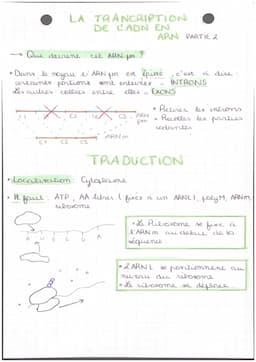 LA TRANCRIPTION
DE L'ADN EN
ARN PARTIE 2
→ Que devient cet ARN pm ?
• Dans le noyau l'ARN pm est épissé, c'est à dire :
certaines portions sont enlevées → INTRONS
les autres collées entre elles → EXONS
ARN pm
ARN m
• Retirer les introns
• Recoller les parties
codantes
TRADUCTION
• Localisation : Cytoplasme
• Il faut : ATP, AA libres (fixés à un ARNt), ARNm,
ribosome
• Le Ribosome se fixe à
l'ARNm au début de la
séquence
• L'ARNt se positionne au
niveau du ribosome
• Le ribosome se déplace